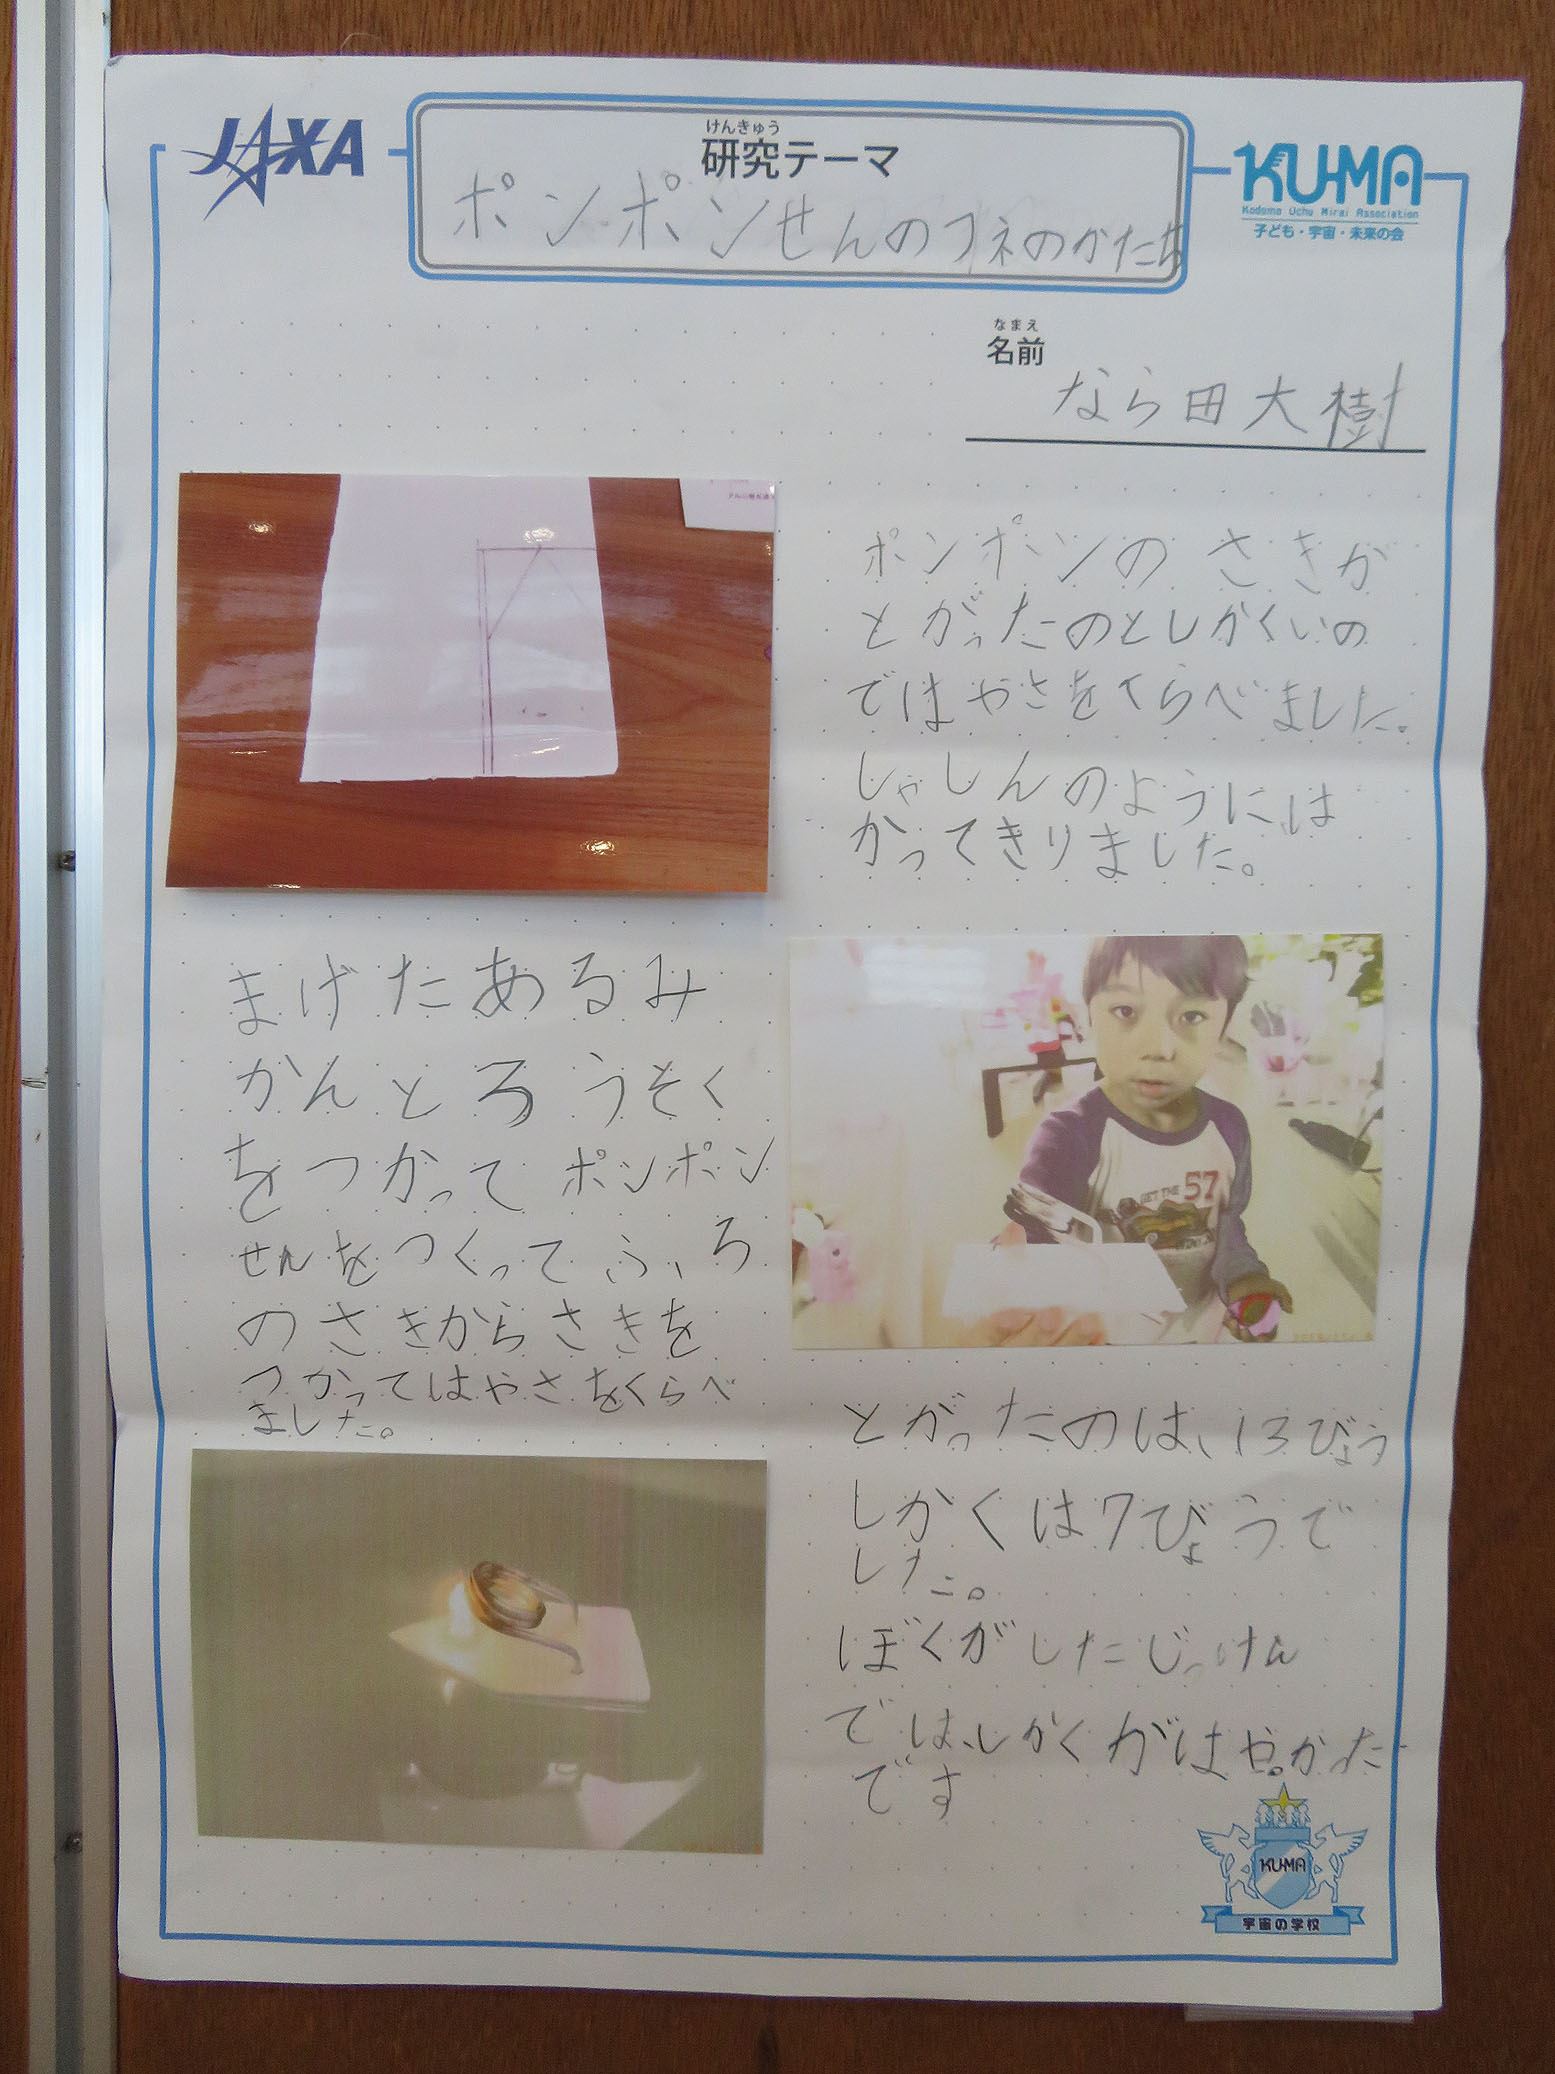 JAXA
けんきゅう
研究テーマ
ポンポンせんのフネのかたち
KU-MA
Kodomo Uchu Mirai Association
子ども・宇宙・未来の会
なまえ
名前
なら田大樹
ポンポンのさきが
とがったのとしかくいの
ではやさをくらべました。
しゃしんのようには
かってきりました。
まげたあるみ
かんとろうそく
をつかってポンポン
せんをつくってふろ
のさきからさきを
つかってはやさをくらべ
ました。
GET THE 57
とがったのは、13びょう
しかくは7びょうで
した。
ぼくがしたじっけん
では、しかくがはやかった
です
KU-MA
宇宙の学校